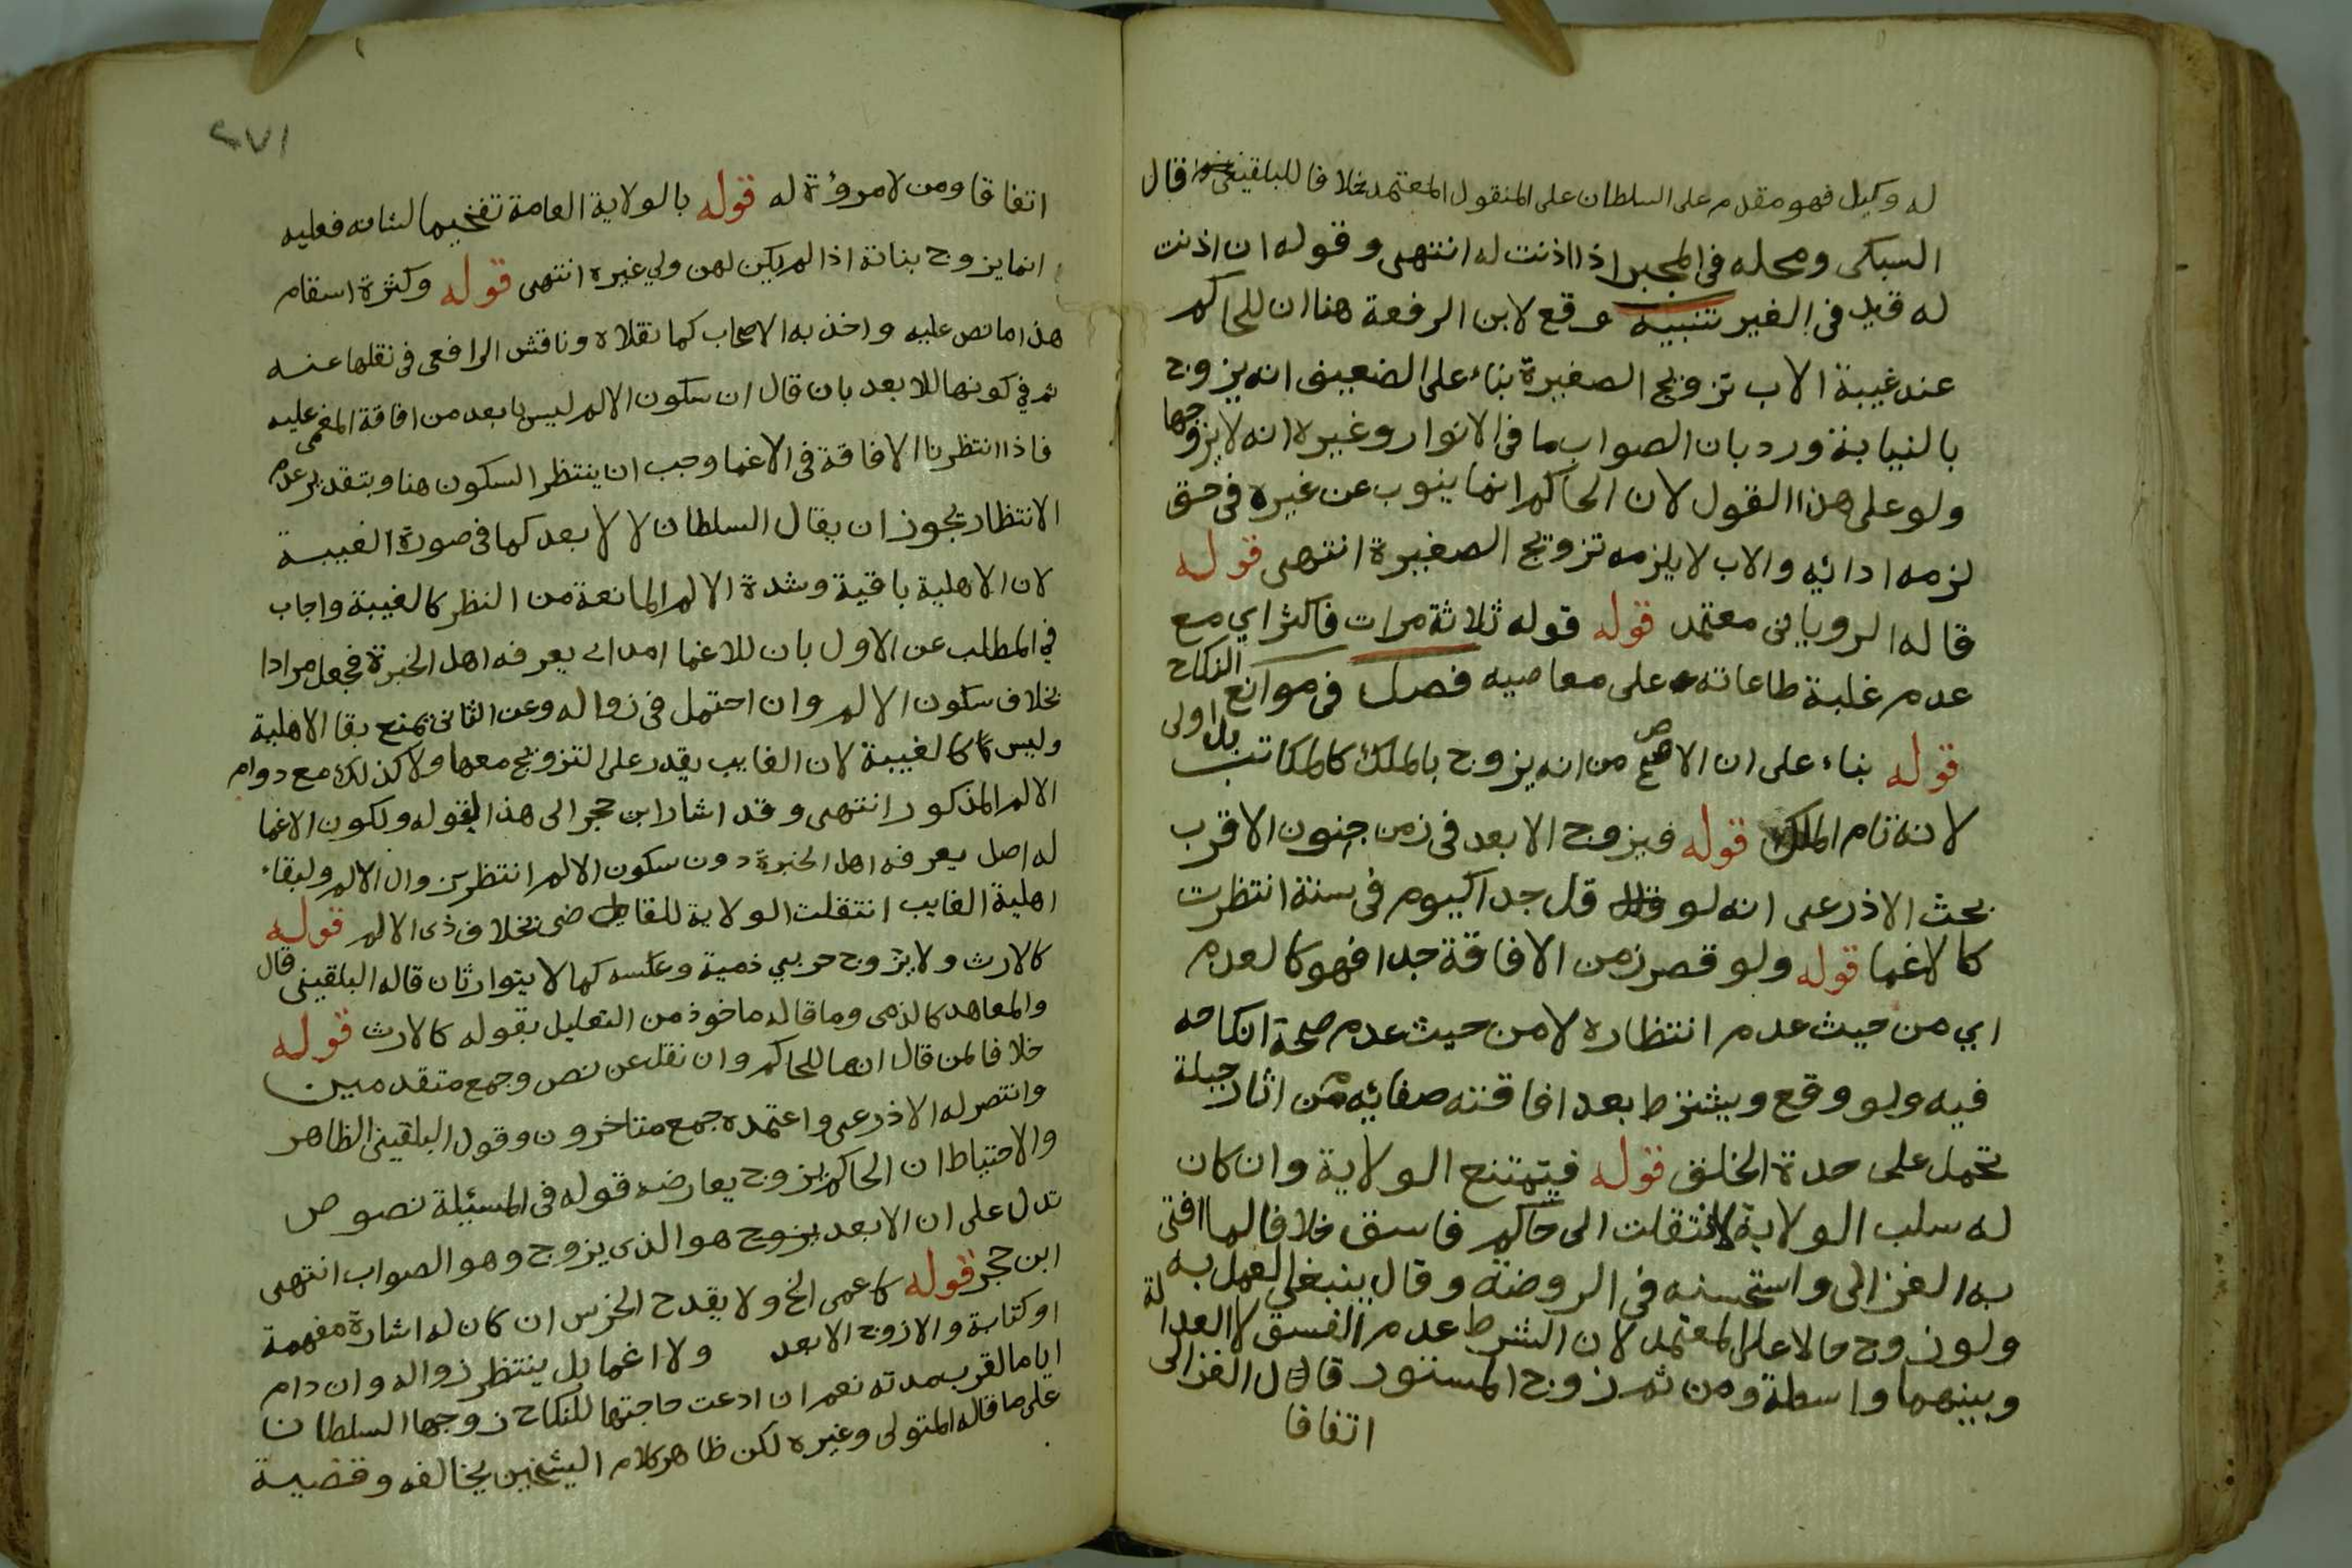 له وكيل فهو مقدم على السلطان على المنقول المعتمد خلافا للبلقيني قال
السبكى ومحله فى المجبر اذا اذنت له انتهى وقوله ان اذنت
له قيد فى الغير تنبيه وقع لابن الرفعة هنا ان للحاكم
عند غيبة الاب تزويج الصغيرة بناء على الضعيف انه يزوج
بالنيابة ورد بان الصواب ما فى الانوار وغيره انه لا يزوجها
ولو على هذا القول لان الحاكم انما ينوب عن غيره فى حق
لزمه ادائه والاب لا يلزمه تزويج الصغيرة انتهى قوله
قاله الرويانى معتمد قوله قوله ثلاثة مرات فاكثر اي مع
عدم غلبة طاعاته على معاصيه فصل فى موانع النكاح
قوله بناء على ان الاصح من انه يزوج بالملك كالمكاتب بل اولى
لانه تام الملك قوله فيزوج الابعد فى زمن جنون الاقرب
بحث الاذرعى انه لو قل جدا كيوم فى سنة انتظرت
كالاغما قوله ولو قصر زمن الافاقة جدا فهو كالعدم
اي من حيث عدم انتظاره لا من حيث عدم صحة انكاحه
فيه ولو وقع ويشترط بعد افاقته صفائه من اثار جبلة
تحمل على حدة الخلق قوله فيمتنع الولاية وان كان
له سلب الولاية لانتقلت الى حاكم فاسق خلافا لما افتى
به الغزالى واستحسنه فى الروضة وقال ينبغي العمل به
ولو زوج حالا على المعتمد لان الشرط عدم الفسق لا العدالة
وبينهما واسطة ومن ثم زوج المستور قال الغزالى
اتفاقا
٢٧١
اتفاقا ومن لا مروؤة له قوله بالولاية العامة تفخيما لشانه فعليه
انما يزوج بناته اذا لم يكن لهن ولي غيره انتهى قوله وكثرة اسقام
هذا ما نص عليه واخذ به الاصحاب كما نقلاه وناقش الرافعى فى نقلها عنه
ثم في كونها للابعد بان قال ان سكون الالم ليس بابعد من افاقة المغمى عليه
فاذا انتظرنا الافاقة فى الاغما وجب ان ينتظر السكون هنا وبتقدير عدم
الانتظار يجوز ان يقال السلطان لا لابعد كما فى صورة الغيبة
لان الاهلية باقية وشدة الالم المانعة من النظر كالغيبة واجاب
في المطلب عن الاول بان للاغما امدا يعرفه اهل الخبرة فجعل مرادا
بخلاف سكون الالم وان احتمل فى زواله وعن الثانى بمنع بقا الاهلية
وليس كالغيبة لان الغايب يقدر على التزويج معها ولا كذلك مع دوام
الالم المذكور انتهى وقد اشار ابن حجر الى هذا بقوله ولكون الاغما
له اصل يعرفه اهل الخبرة دون سكون الالم انتظر زوال الالم ولبقاء
اهلية الغايب انتقلت الولاية للقاضى بخلاف ذى الالم قوله
كالارث ولا يزوج حربي ذمية وعكسه كما لا يتوارثان قاله البلقينى قال
والمعاهد كالذمى وما قاله ماخوذ من التعليل بقوله كالارث قوله
خلافا لمن قال انها للحاكم وان نقل عن نص وجمع متقدمين
وانتصر له الاذرعى واعتمده جمع متاخرون وقول البلقينى الظاهر
والاحتياط ان الحاكم يزوج يعارضه قوله فى المسئلة نصوص
تدل على ان الابعد يزوج هو الذى يزوج وهو الصواب انتهى
ابن حجر قوله كاعمى الخ ولا يقدح الخرس ان كان له اشارة مفهمة
او كتابة والا زوج الابعد ولا اغما بل ينتظر زواله وان دام
اياما لقرب مدته نعم ان ادعت حاجتها للنكاح زوجها السلطان
على ما قاله المتولى وغيره لكن ظاهر كلام الشيخين يخالفه وقضية